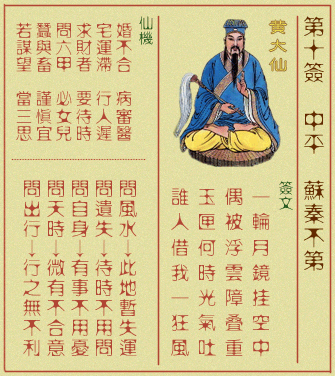 第十簽　中平　蘇秦不第
黃大仙
簽文
一輪月鏡挂空中
偶被浮雲障叠重
玉匣何時光氣吐
誰人借我一狂風
仙機
婚不合　病審醫
宅運滯　行人遲
求財者　要待時
問六甲　必女兒
蠶與畜　謹慎宜
若謀望　當三思
問風水→此地暫失運
問遺失→待時不用問
問自身→有事不用憂
問天時→微有不合意
問出行→行之無不利